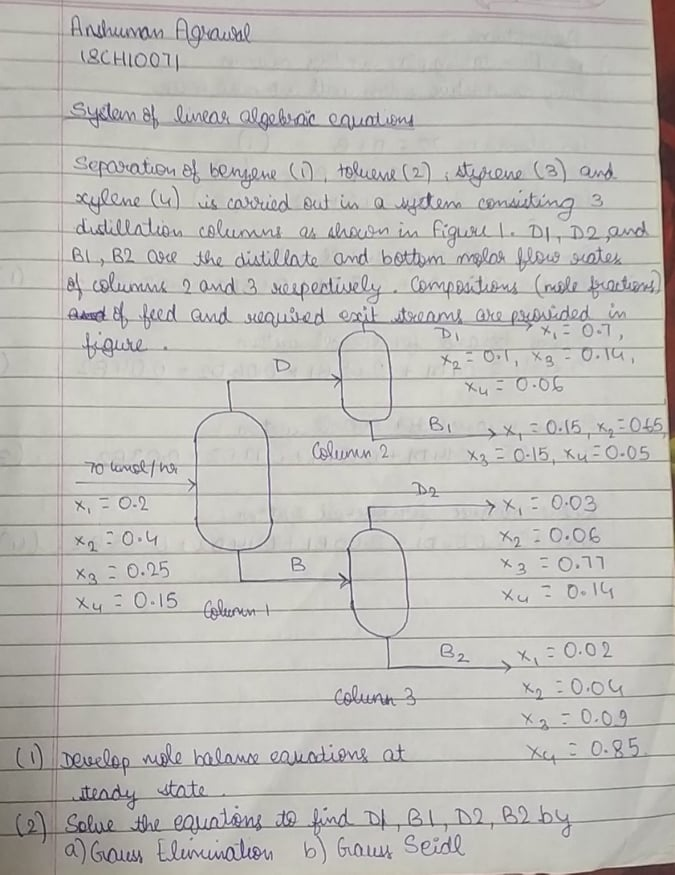 Anshuman Agrawal
18CH10071
System of linear algebraic equations
Separation of benzene (1), toluene (2), styrene (3) and
xylene (4) is carried out in a system consisting 3
distillation columns as shown in figure 1. D1, D2, and
B1, B2 are the distillate and bottom molar flow rates
of columns 2 and 3 respectively. Compositions (mole fractions)
of feed and required exit streams are provided in
figure.
D1 x1 = 0.7,
x2 = 0.1, x3 = 0.14,
x4 = 0.06
D
B1 x1 = 0.15, x2 = 0.65,
Column 2 x3 = 0.15, x4 = 0.05
70 kmol/hr
x1 = 0.2
x2 = 0.4
x3 = 0.25
x4 = 0.15
Column 1
D2 x1 = 0.03
x2 = 0.06
x3 = 0.77
x4 = 0.14
B
B2 x1 = 0.02
Column 3 x2 = 0.04
x3 = 0.09
x4 = 0.85
(1) Develop mole balance equations at
steady state.
(2) Solve the equations to find D1, B1, D2, B2 by
a) Gauss Elimination b) Gauss Seidl